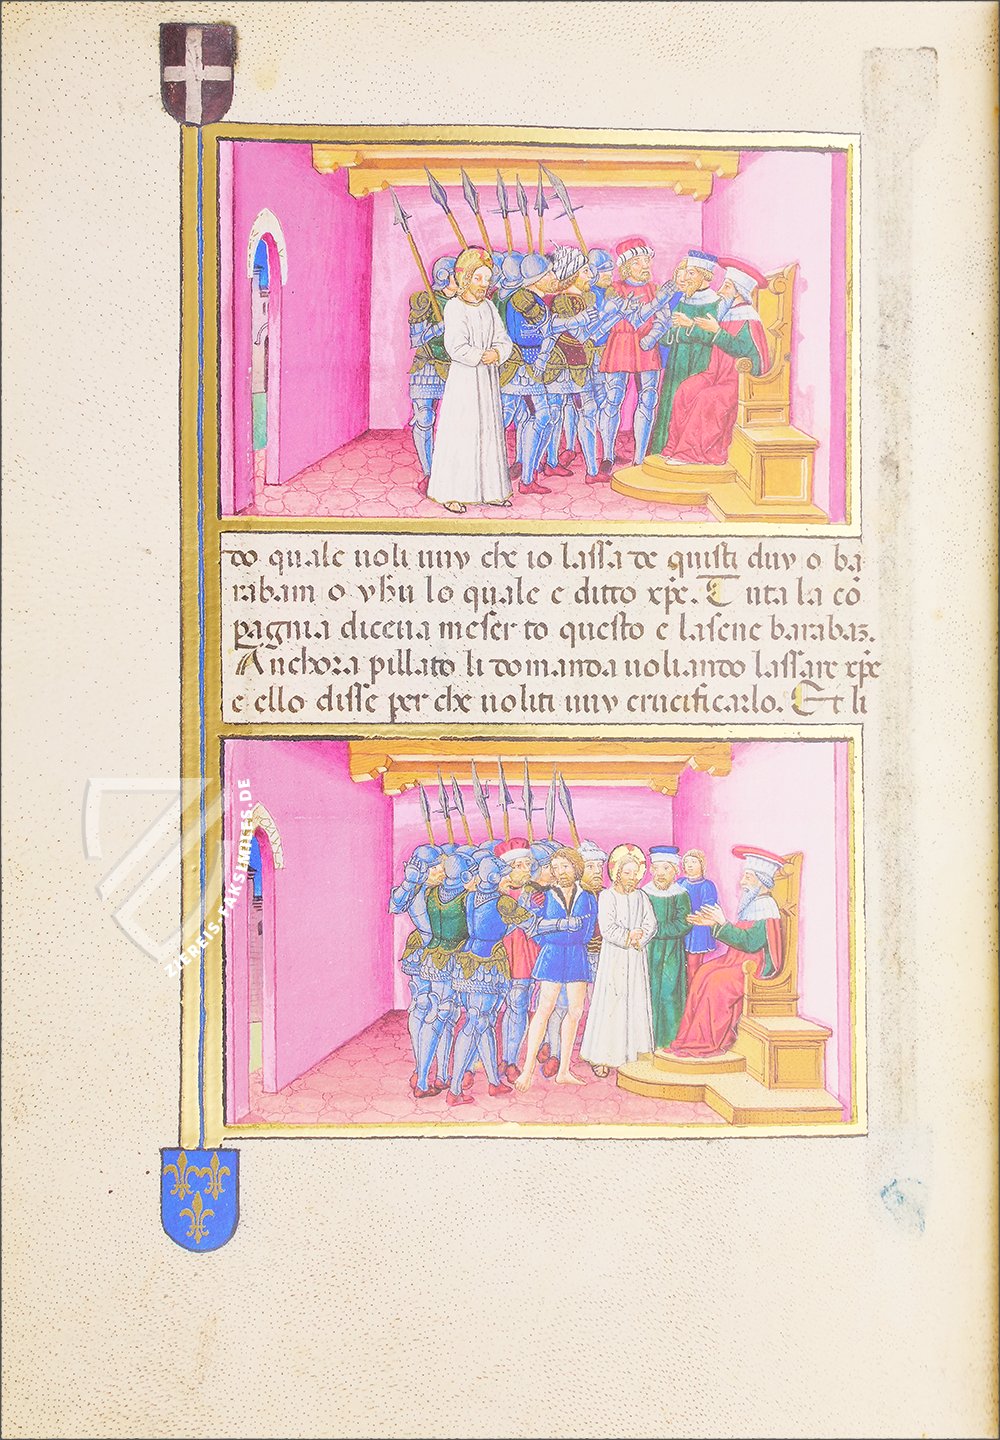 do quale uoli uuy che io lassa de quisti duy o ba
rabam o yħu lo quale e ditto xp̄e. Tuta la cō
pagnia diceua meser to questo e lasene barabaz.
Anchora pillato li domanda uoliando lassare xp̄e
e ello disse per che uoliti uuy crucificarlo. Et li
ZIEREIS-FAKSIMILES.DE